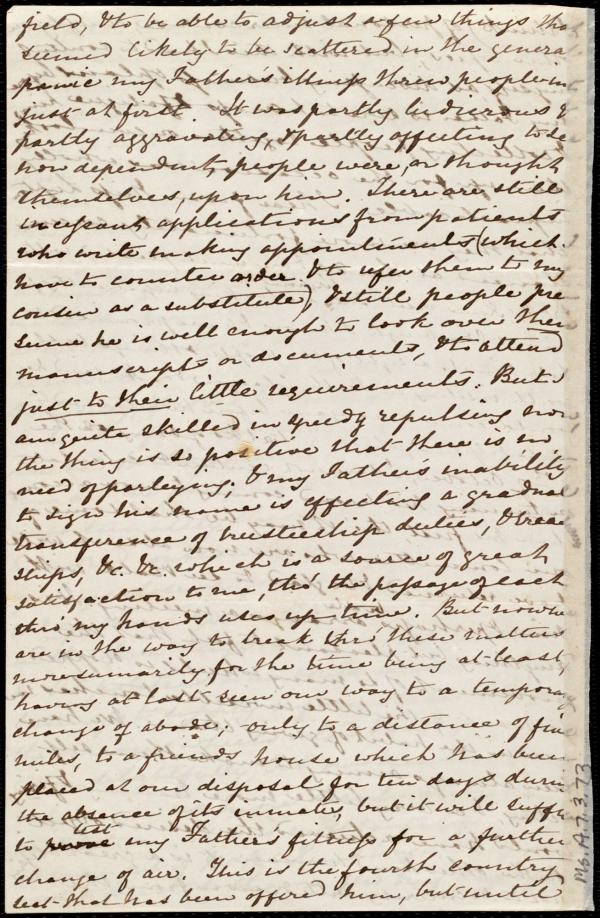 field, & to be able to adjust a few things tha
seemed likely to be scattered in the genera
panic my Father's illness threw people in
just at first. It was partly ludicrous &
partly aggravating, & partly affecting to se
how dependent, people were, or thought
themselves, upon him. There are still
incessant applications from patients
who write making appointments (which I
have to counter order & to refer them to my
cousin as a substitute), & still people pre
sume he is well enough to look over their
manuscripts or documents, & to attend
just to their little requirements. But I
am quite skilled in speedy repulsing now,
the thing is so positive that there is no
need of parleying; & my Father's inability
to sign his name is effecting a gradual
transference of trusteeship duties, & trea
ships, &c. &c. which is a source of great
satisfaction to me, tho' the passage of each
thro' my hands uses up time. But now we
are in the way to break thro' these matters
more sumarily for the time being at least,
having at last seen our way to a temporary
change of abode; only to a distance of five
miles, to a friend's house which has been
placed at our disposal for ten days durin
the absence of its inmates, but it will suffi
to test my Father's fitness for a further
change of air. This is the fourth country
seat that has been offered him, but until
Ms.A.7.3.73